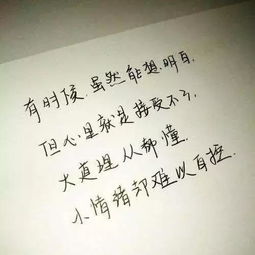 有时候,虽然能想明白,
但心里就是接受不了,
大道理人人都懂,
小情绪却难以自控.